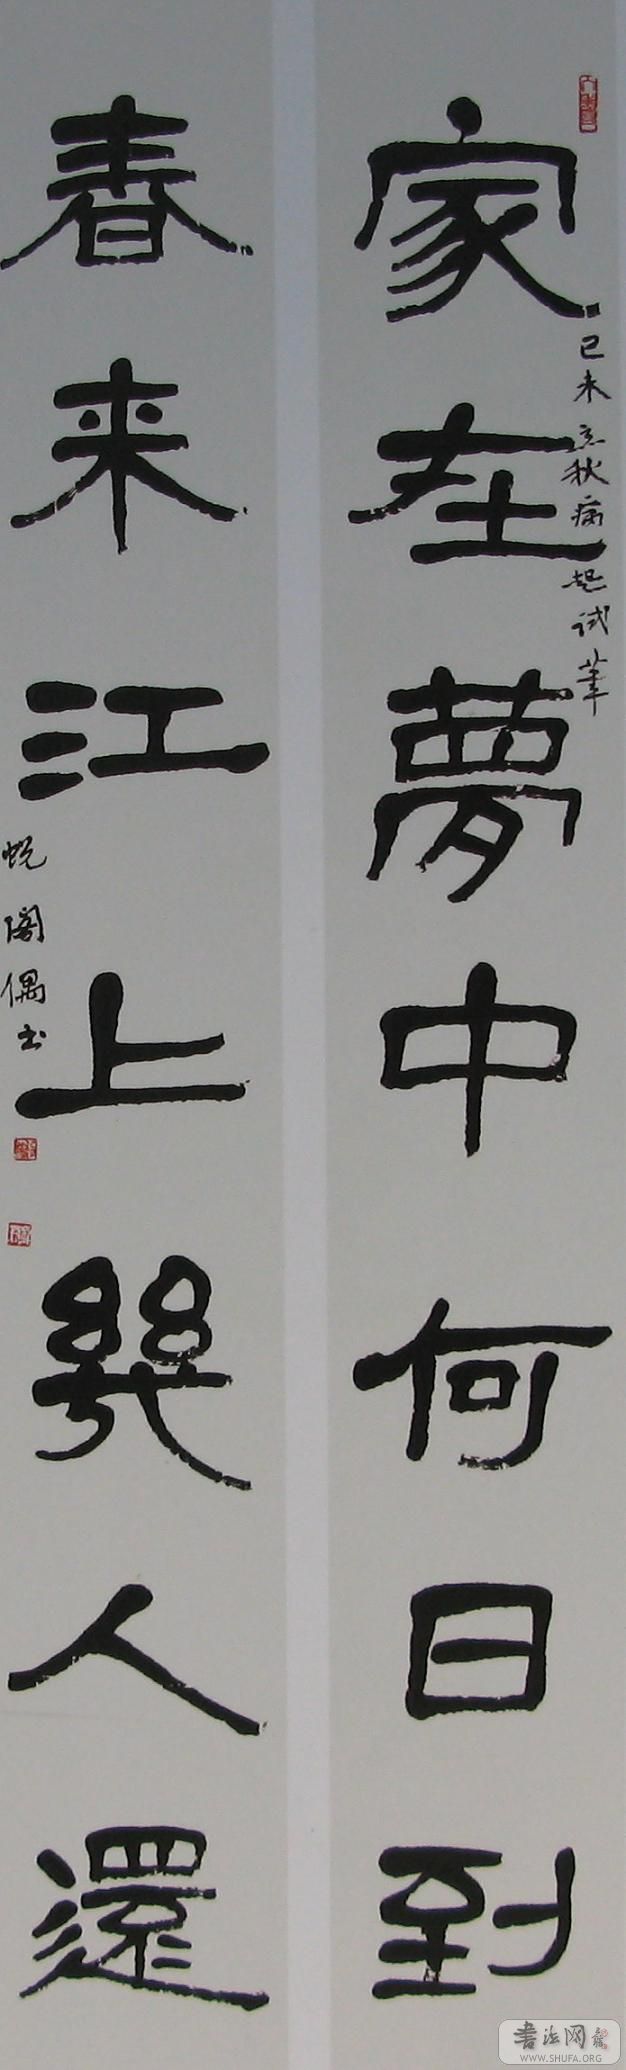 家在夢中何日到
己未立秋病起試筆
春来江上幾人還
蜕闇偶书
書法网
WWW.SHUFA.ORG